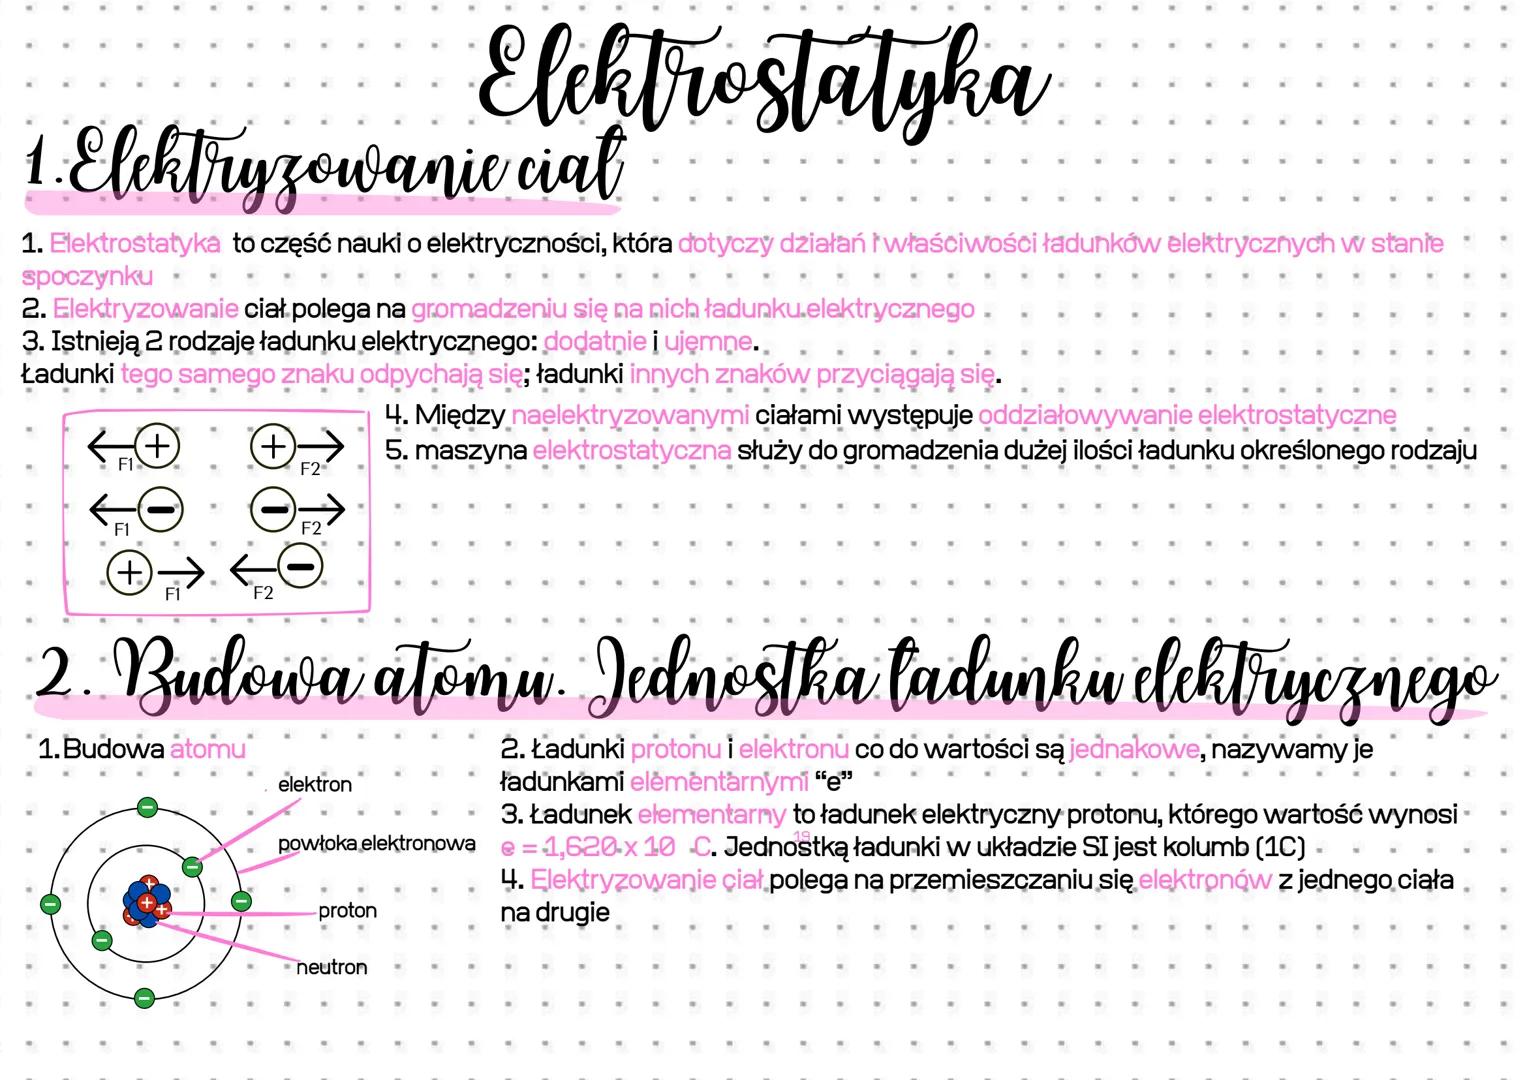 Elektrostatyka
1. Elektryzowanie ciał
1. Elektrostatyka to część nauki o elektryczności, która dotyczy działań i właściwości ładunków elektrycznych w stanie
spoczynku
2. Elektryzowanie ciał polega na gromadzeniu się na nich ładunku elektrycznego
3. Istnieją 2 rodzaje ładunku elektrycznego: dodatnie i ujemne.
Ładunki tego samego znaku odpychają się; ładunki innych znaków przyciągają się.
4. Między naelektryzowanymi ciałami występuje oddziałowywanie elektrostatyczne
5. maszyna elektrostatyczna służy do gromadzenia dużej ilości ładunku określonego rodzaju
+ +
F1 F2
− −
F1 F2
+ −
F1 F2
2. Budowa atomu. Jednostka ładunku elektrycznego
1. Budowa atomu
elektron
powłoka elektronowa
proton
neutron
2. Ładunki protonu i elektronu co do wartości są jednakowe, nazywamy je
ładunkami elementarnymi “e”
3. Ładunek elementarny to ładunek elektryczny protonu, którego wartość wynosi
19
e = 1,620 x 10 C. Jednostką ładunki w układzie SI jest kolumb (1C)
4. Elektryzowanie ciał polega na przemieszczaniu się elektronów z jednego ciała
na drugie